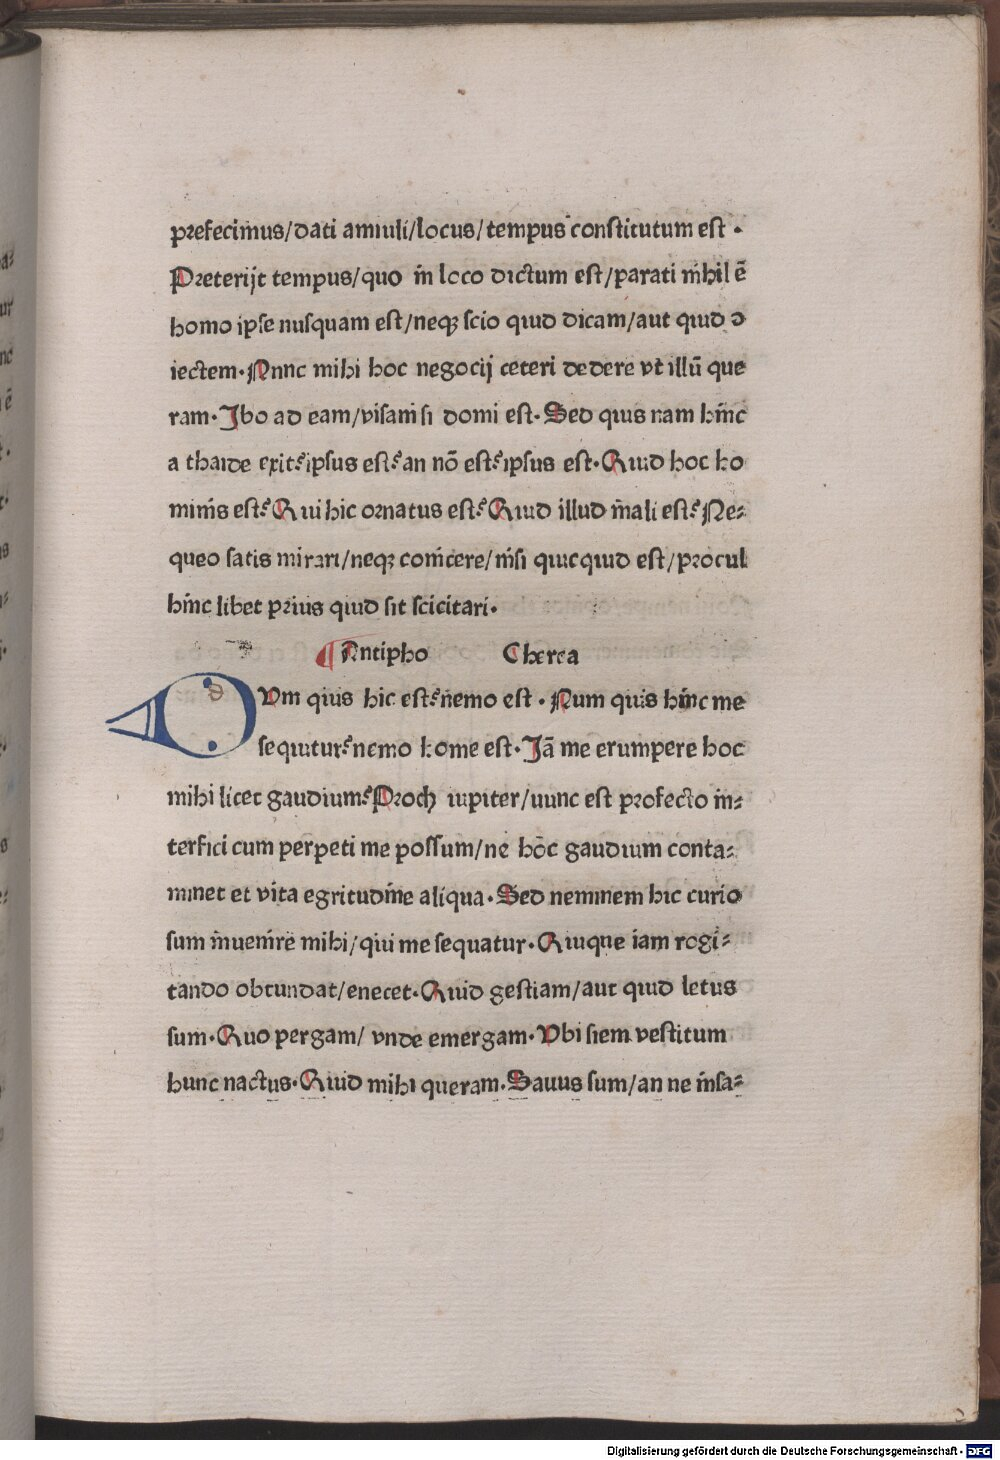 prefecimus/dati annuli/locus/tempus constitutum est .
Preterijt tempus/quo in loco dictum est/parati nihil ē
homo ipse nusquam est/neqꝫ scio quid dicam/aut quid ↄ
iectem. Nnnc mihi hoc negocij ceteri dedere vt illū que
ram. Ibo ad eam/visam si domi est. Sed quis nam hinc
a thaide exit? ipsus est? an nō est? ipsus est. Quid hoc ho
minis est? Qui hic ornatus est? Quid illud mali est? Ne⸗
queo satis mirari/neqꝫ conicere/nisi quicquid est/procul
hinc libet prius quid sit scicitari.
Antipho Cherea
Vm quis hic est? nemo est . Num quis hinc me
sequitur? nemo home est. Iā me erumpere hoc
mihi licet gaudium? Proch iupiter/uunc est profecto in⸗
terfici cum perpeti me possum/ne hoc gaudium conta⸗
minet et vita egritudine aliqua. Sed neminem hic curio
sum inuenire mihi/qui me sequatur. Quique iam rogi⸗
tando obtundat/enecet. Quid gestiam/aut quid letus
sum. Quo pergam/ vnde emergam. Vbi siem vestitum
hunc nactus. Quid mihi queram. Sauus sum/an ne insa⸗
Digitalisierung gefördert durch die Deutsche Forschungsgemeinschaft - DFG